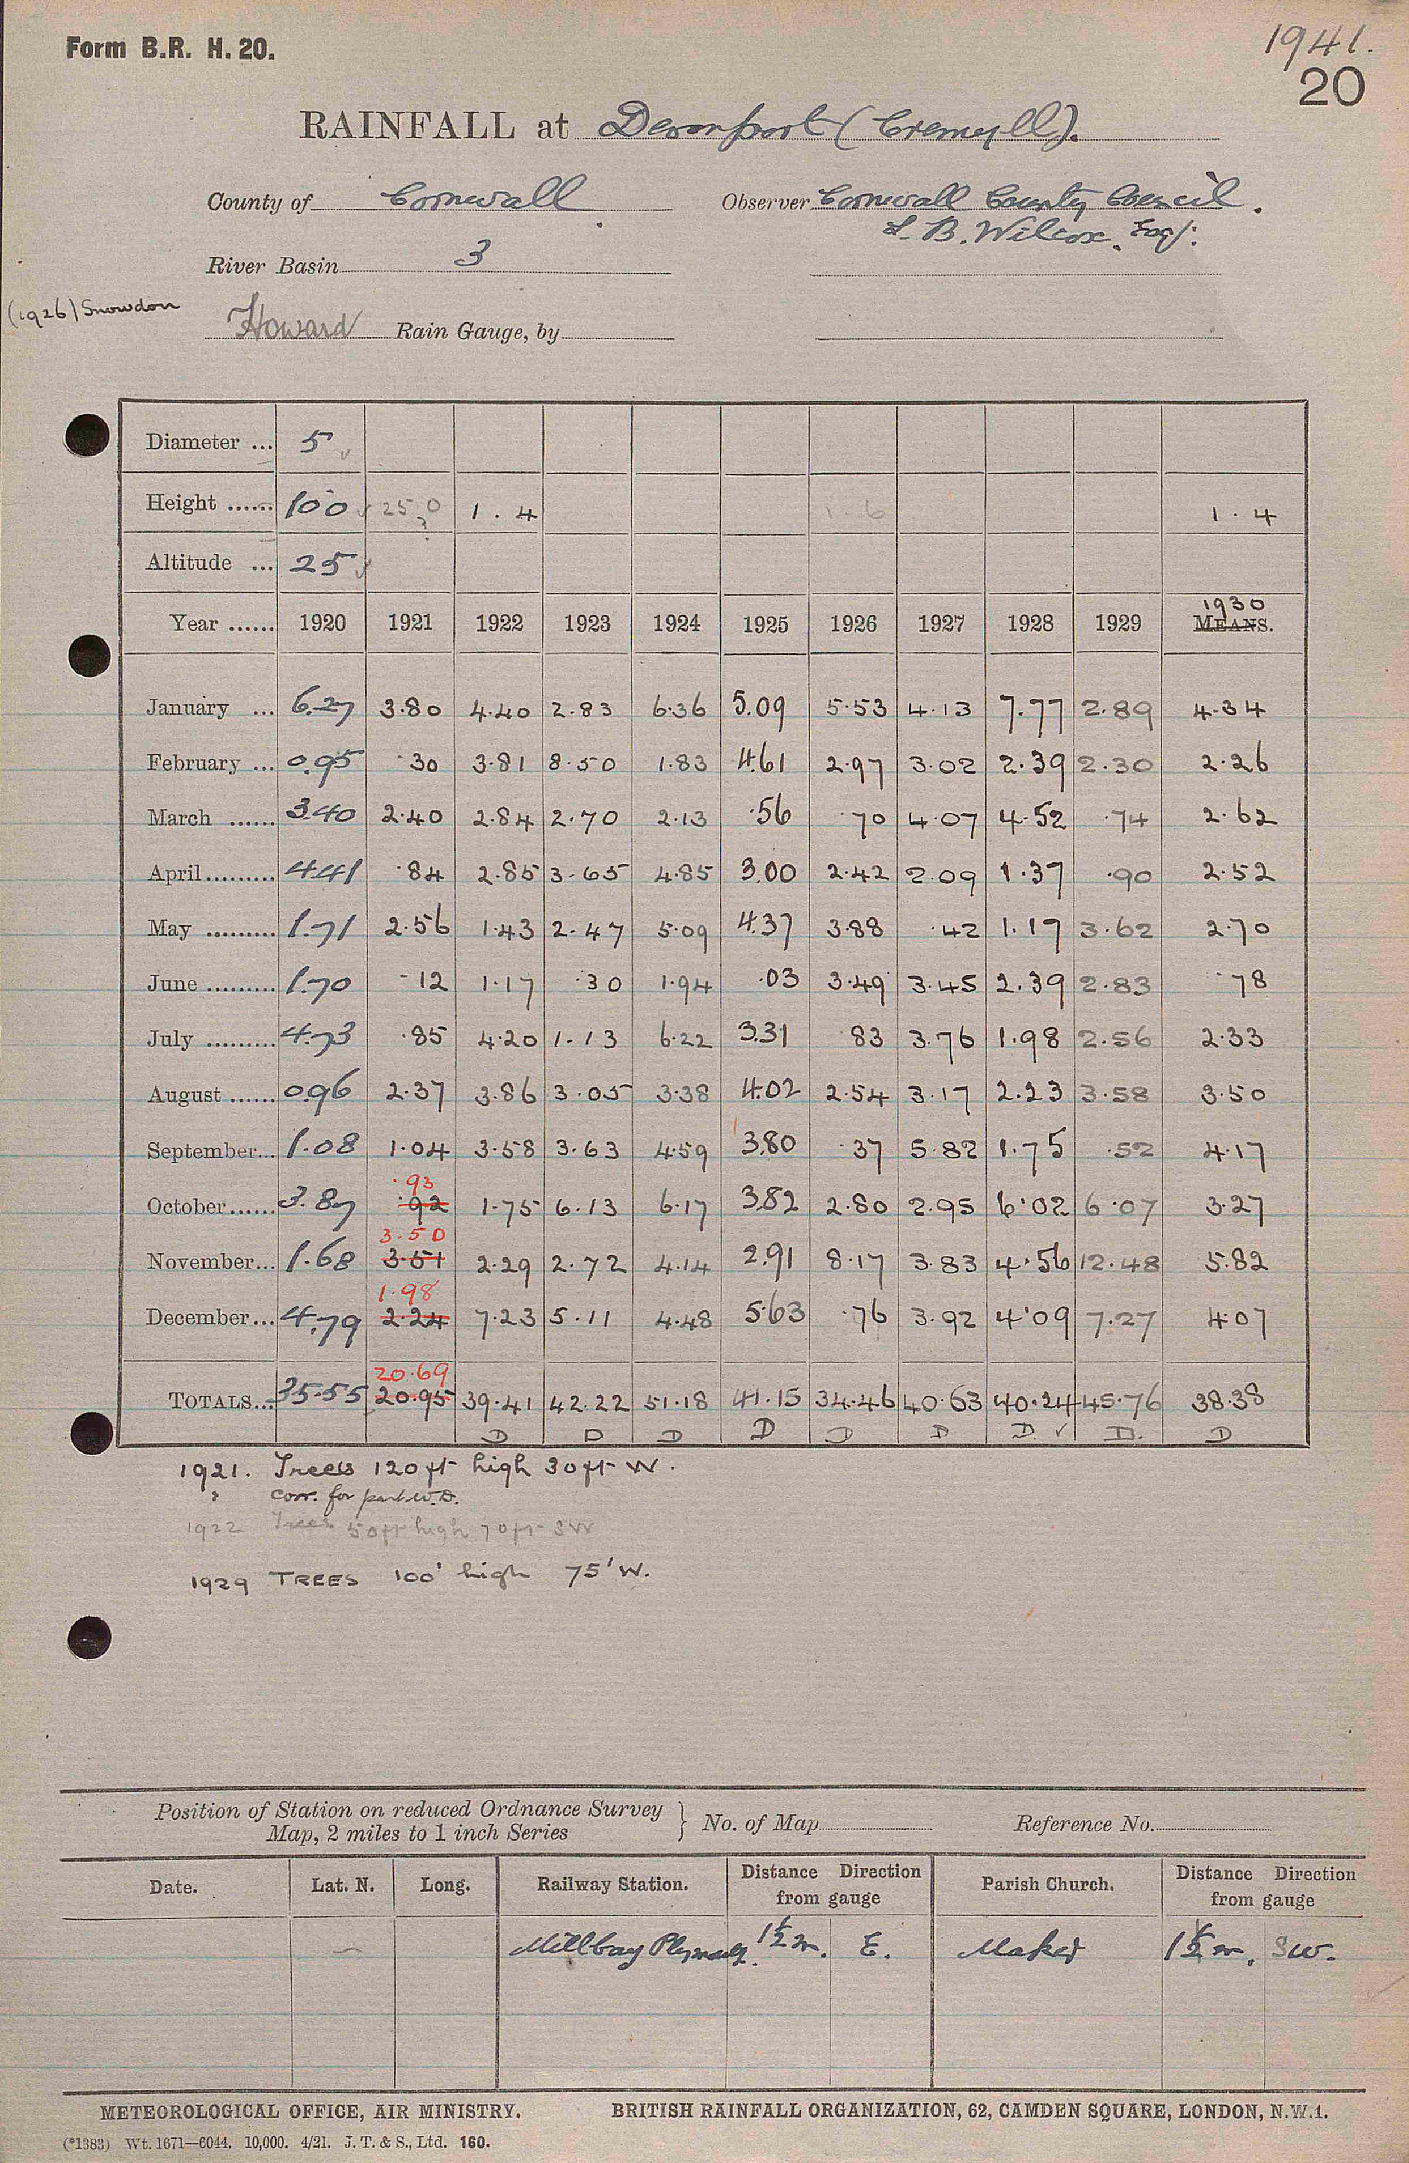 Form B.R. H. 20.
1941.
20
RAINFALL at Devonport (Cremyll).
County of Cornwall Observer Cornwall County Council.
L. B. Wilcox. Esq:
River Basin 3
(1926) Snowdon
Howard Rain Gauge, by
Diameter ... 5
Height ...... 1 0 0 25.0 1 . 4 1.6 1 . 4
?
Altitude ... 25
1930
Year ...... 1920 1921 1922 1923 1924 1925 1926 1927 1928 1929 MEANS.
January ... 6.27 3.80 4.40 2.83 6.36 5.09 5.53 4.13 7.77 2.89 4.34
February ... 0.95 .30 3.81 8.50 1.83 4.61 2.97 3.02 2.39 2.30 2.26
March ...... 3.40 2.40 2.84 2.70 2.13 .56 .70 4.07 4.52 .74 2.62
April ......... 4.41 .84 2.85 3.65 4.85 3.00 2.42 2.09 1.37 .90 2.52
May ......... 1.71 2.56 1.43 2.47 5.09 4.37 3.88 .42 1.17 3.62 2.70
June ......... 1.70 .12 1.17 .30 1.94 .03 3.49 3.45 2.39 2.83 .78
July ......... 4.73 .85 4.20 1.13 6.22 3.31 .83 3.76 1.98 2.56 2.33
August ...... 0.96 2.37 3.86 3.05 3.38 4.02 2.54 3.17 2.23 3.58 3.50
September... 1.08 1.04 3.58 3.63 4.59 3.80 .37 5.82 1.75 .52 4.17
.93
October...... 3.87 .92 1.75 6.13 6.17 3.82 2.80 2.95 6.02 6.07 3.27
3.50
November... 1.68 3.51 2.29 2.72 4.14 2.91 8.17 3.83 4.56 12.48 5.82
1.98
December... 4.79 2.24 7.23 5.11 4.48 5.63 .76 3.92 4.09 7.27 4.07
20.69
TOTALS... 35.55 20.95 39.41 42.22 51.18 41.15 34.46 40.63 40.24 45.76 38.38
D D D D D D D ✓ D. D
1921. Trees 120 ft high 30 ft W.
? corr. for part W.D.
1922 Trees 50 ft high 70 ft SW
1929 TREES 100' high 75' W.
Position of Station on reduced Ordnance Survey
Map, 2 miles to 1 inch Series } No. of Map Reference No.
Date. Lat. N. Long. Railway Station. Distance Direction from gauge Parish Church. Distance Direction from gauge
Millbay Plymouth. 1½ m. E. Maker 1½ m. SW.
METEOROLOGICAL OFFICE, AIR MINISTRY. BRITISH RAINFALL ORGANIZATION, 62, CAMDEN SQUARE, LONDON, N.W.1.
(*1383) Wt. 1671—6044. 10,000. 4/21. J. T. & S., Ltd. 160.